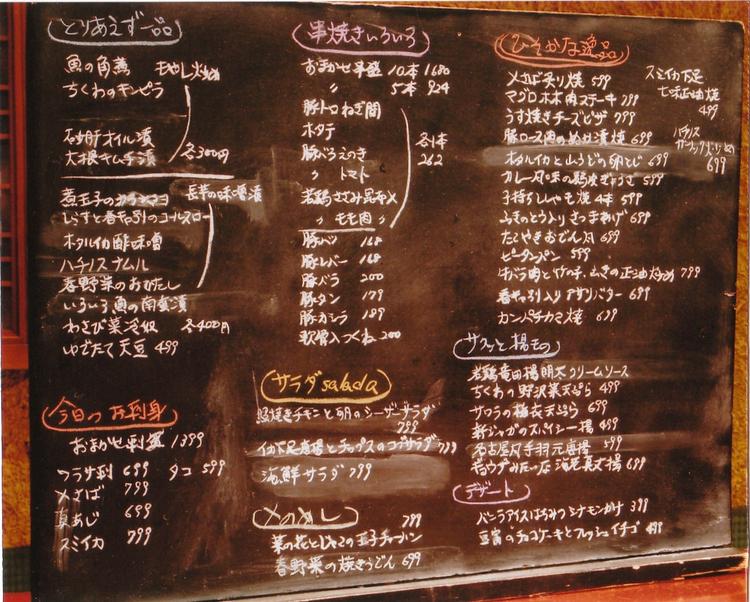 とりあえず一品
魚の角煮 もやし炒め
ちくわのキンピラ
砂肝オイル漬
大根キムチ漬 各300円
煮玉子のカラシマヨ 長芋の味噌漬
しらすと春キャベツのコールスロー
ホタルイカ酢味噌
ハチノスナムル
春野菜のおひたし
いろいろ魚の南蛮漬
わさび菜冷奴 各400円
ゆでたて天豆 499
今日のお刺身
おまかせ刺盛 1399
ワラサ刺 699 タコ 599
〆さば 799
真あじ 699
スミイカ 799
串焼きいろいろ
おまかせ串盛 10本 1680
〃 5本 924
豚トロねぎ間
ホタテ
豚バラえのき 各1本
〃 トマト 262
若鶏ささみ昆布〆
〃 もも肉
豚ハツ 168
豚レバー 168
豚バラ 200
豚タン 179
豚カシラ 189
軟骨入つくね 200
サラダsalada
照焼きチキンと のシーザーサラダ
799
イカ下足唐揚とチップスの サラダ 799
海鮮サラダ 799
〆のめし
菜の花とじゃこの玉子チャーハン 799
春野菜の焼きうどん 699
ひそかな逸品
〆さば炙り焼 599
マグロホホ肉ステーキ 799
うす焼きチーズピザ 799
豚ロース肉のぬか漬焼 699
ホタルイカと山うどの卵とじ 699
カレー風味の鶏皮ぎょうざ 599
子持ちししゃも焼 4本 599
ふきのとう入りさつまあげ 699
たこやきおでん 699
ピータンペン 599
牛バラ肉と竹の子、ふきの正油炒め 799
春キャベツ入りアサリバター 699
カンパチカマ焼 699
スミイカ下足
七味正油焼
499
ハチノス
ガーリック
699
サクッと揚もの
若鶏竜田揚 明太クリームソース
ちくわの野沢菜天ぷら 499
サワラの梅衣天ぷら 699
新ジャガのスパイシー揚 499
名古屋風手羽元唐揚 599
海老真丈揚 699
デザート
バニラアイスはちみつシナモンがけ 399
豆腐のチョコケーキとフレッシュイチゴ 499